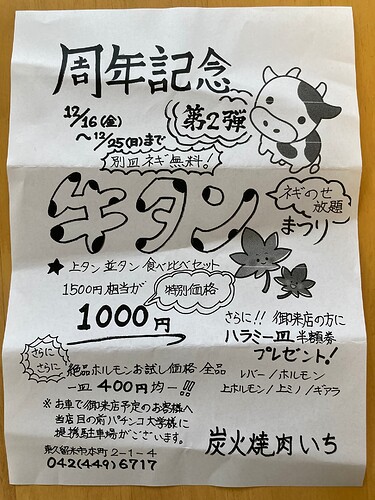 周年記念
12/16(金)
〜12/25(月)まで
第2弾
別皿ネギ無料!
牛タン
ネギのせ
放題
まつり
★上タン並タン食べ比べセット
1500円相当が
特別価格
1000円
さらに!!御来店の方に
ハラミ一皿半額券
プレゼント!
さらに
さらに
絶品ホルモンお試し価格 全品
一皿 400円均一!!
レバー/ホルモン
上ホルモン/上ミノ/ギアラ
※お車で御来店予定のお客様へ
当店目の前パチンコ大学様に
提携駐車場がございます。
東久留米市本町2-1-4
042(449)6717
炭火焼肉いち